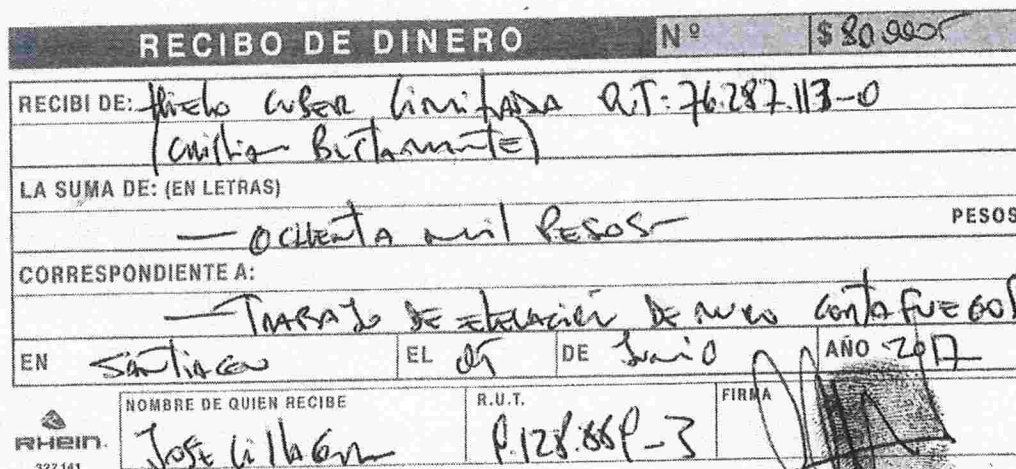 RECIBO DE DINERO Nº $ 80.000
RECIBI DE: Hielo Cuber Limitada R.T: 76.287.113-0
(Cristian Bustamante)
LA SUMA DE: (EN LETRAS)
— OCHENTA mil PESOS — PESOS
CORRESPONDIENTE A:
— TRABAJO DE elevación DE muro contafuegos
EN Santiago EL 05 DE Junio AÑO 2017
NOMBRE DE QUIEN RECIBE R.U.T. FIRMA
RHEIN. José 9.128.869-3
327141